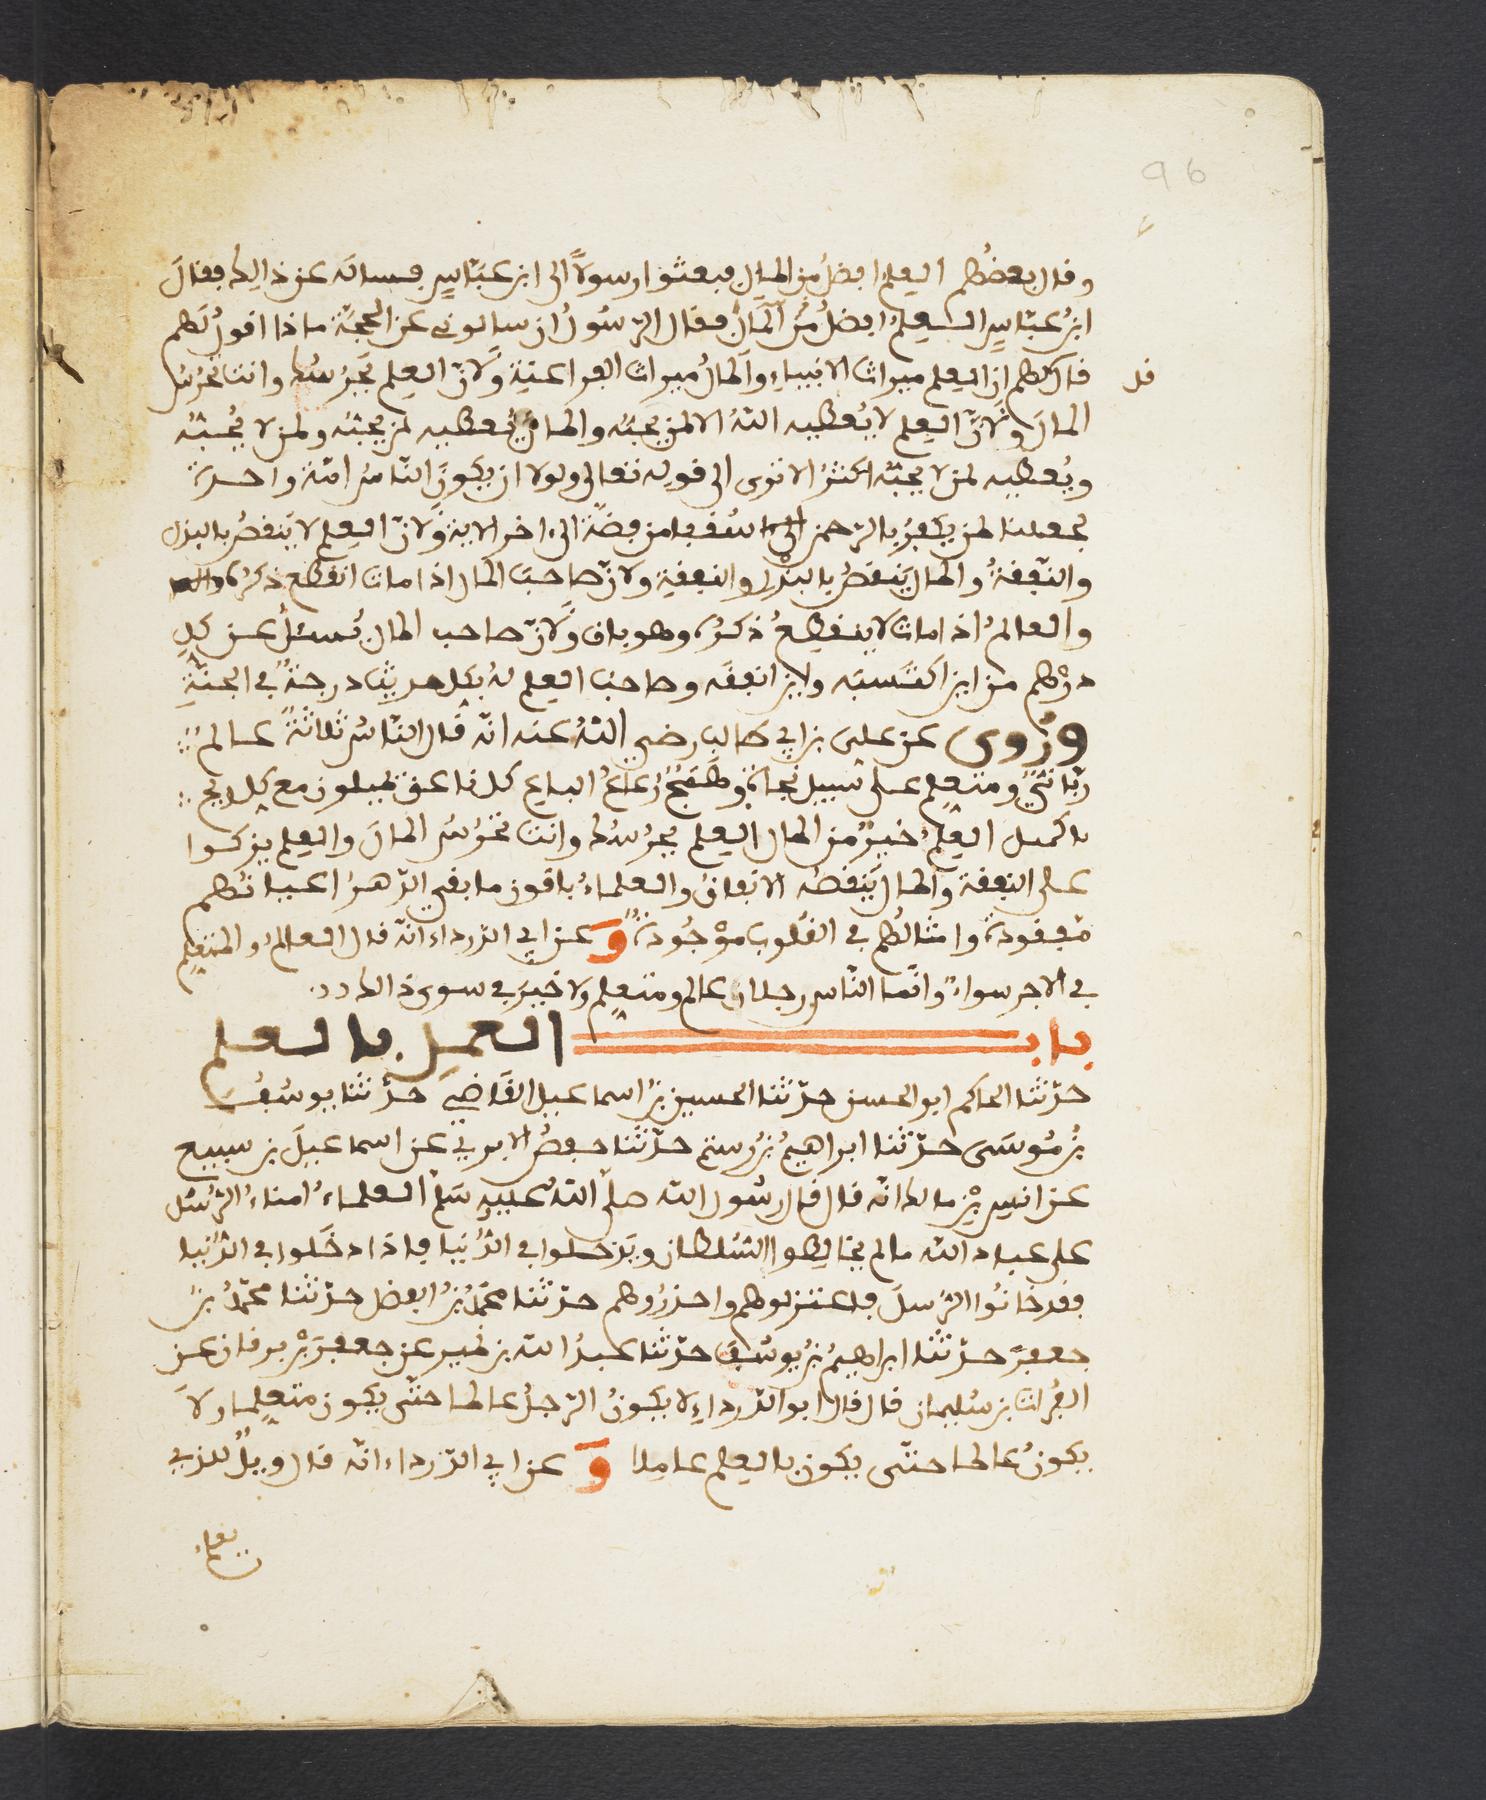 96
وقال بعضهم العلم افضل من المال فبعثوا رسولا الى ابن عباس فساله عن ذالك فقال
ابن عباس العلم افضل من المال فقال الرسول ان سالوني عن الحجة ماذا اقول لهم
قال قل لهم ان العلم ميراث الانبياء والمال ميراث الفراعنة ولان العلم يحرسك وانت تحرس
المال ولان العلم لا يعطيه الله الا لمن يحبه والمال يعطيه لمن يحبه ولمن لا يحبه
ويعطيه لمن لا يحبه اكثر الا ترى الى قوله تعالى ولولا ان يكون الناس امة واحدة
لجعلنا لمن يكفر بالرحمن سقفا من فضة الى اخر الاية ولان العلم لا ينقص بالبذل
والنفقة والمال ينقص بالبذل والنفقة ولان صاحب المال اذا مات انقطع ذكره
والعالم اذا مات لا ينقطع ذكره وهو باق ولان صاحب المال يسئل عن كل
درهم من اين اكتسبه واين انفقه وصاحب العلم له بكل حديث درجة في الجنة
وروى عن على بن ابي طالب رضي الله عنه انه قال الناس ثلاثة عالم
رباني ومتعلم على سبيل نجاة وهمج رعاع اتباع كل ناعق يميلون مع كل ريح
يا كميل العلم خير من المال العلم يحرسك وانت تحرس المال والعلم يزكوا
على النفقة والمال ينقصه الانفاق والعلماء باقون ما بقي الدهر اعيانهم
مفقودة وامثالهم في القلوب موجودة وعن ابي الدرداء انه قال العالم والمتعلم
في الاجر سواء وانما الناس رجلان عالم ومتعلم ولا خير في سوى ذالك
باب العمل بالعلم
حدثنا الحاكم ابو الحسن حدثنا الحسين بن اسماعيل القاضي حدثنا يوسف
بن موسى حدثنا ابراهيم بن رستم حدثنا حفص الابري عن اسماعيل بن سبيع
عن انس بن مالك انه قال قال رسول الله صلى الله عليه سلم العلماء امناء الرسل
على عباد الله مالم يخالطوا السلطان ويدخلوا في الدنيا فاذا دخلوا في الدنيا
فقد خانوا الرسل فاعتزلوهم واحذروهم حدثنا محمد بن الفضل حدثنا محمد بن
جعفر حدثنا ابراهيم بن يوسف حدثنا عبد الله بن نمير عن جعفر بن برقان عن
الفرات بن سليمان قال قال ابو الدرداء لا يكون الرجل عالما حتى يكون متعلما ولا
يكون عالما حتى يكون بالعلم عاملا وعن ابي الدرداء انه قال ويل للذي